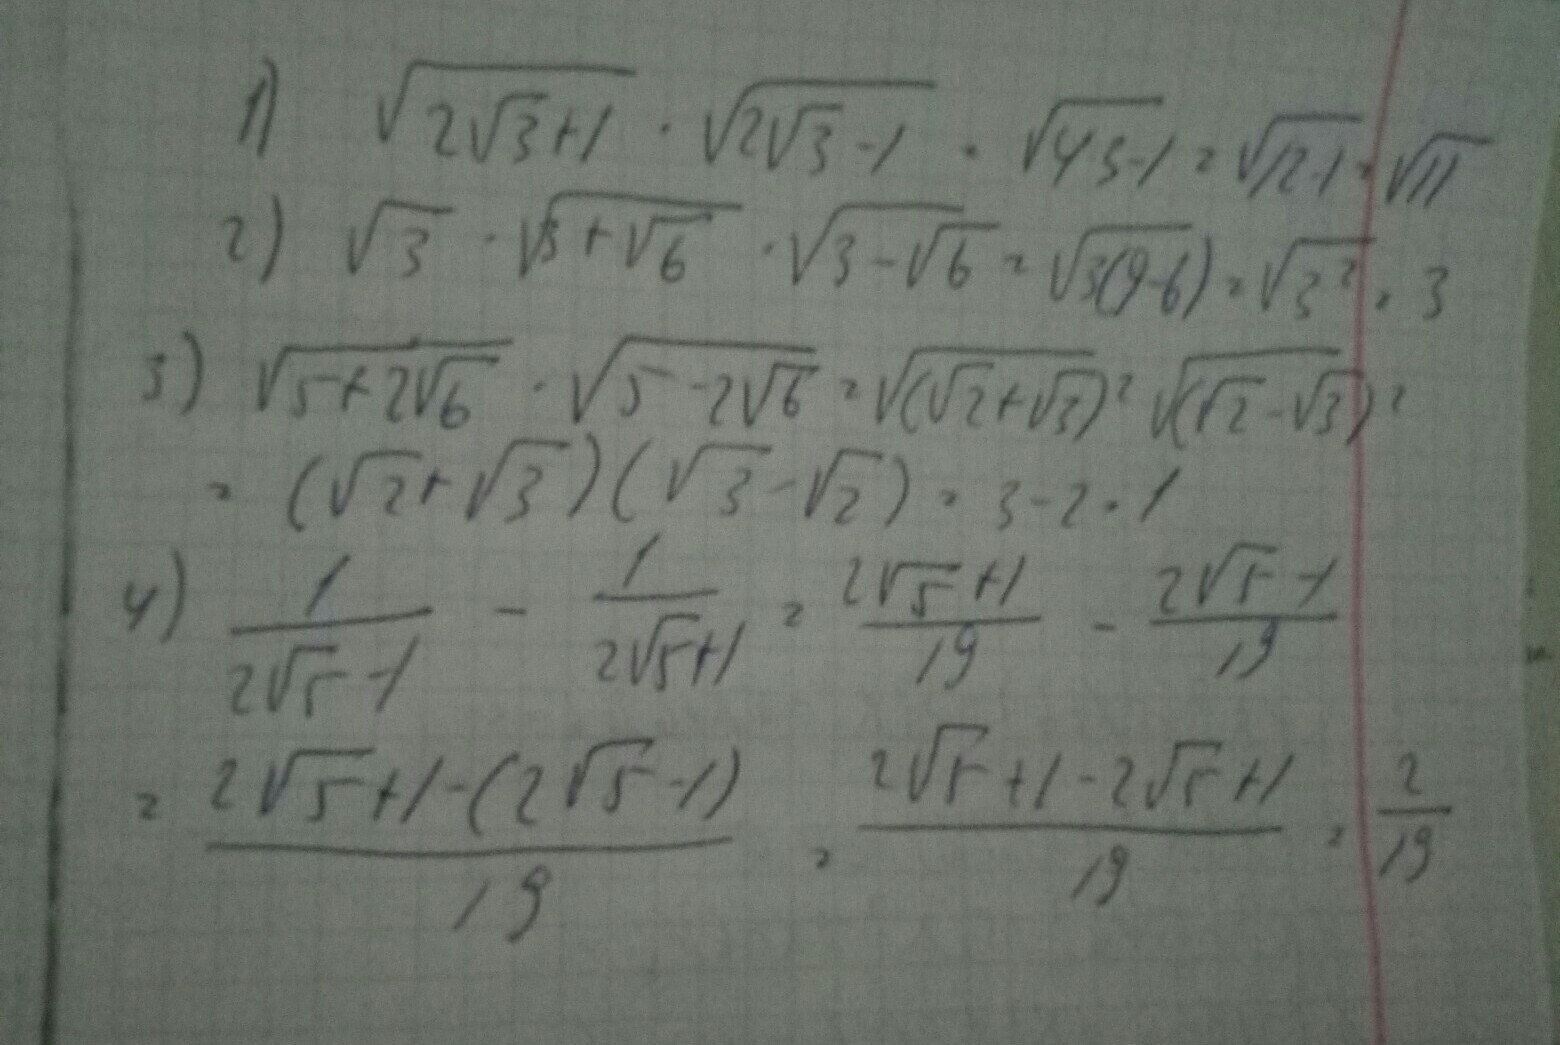 1) √(2√3+1) · √(2√3-1) = √(4·3-1) = √(12-1) = √11
2) √3 · √(3+√6) · √(3-√6) = √(3(9-6)) = √(3²) = 3
3) √(5+2√6) · √(5-2√6) = √((√2+√3)²) √((√2-√3)²)
= (√2+√3)(√3-√2) = 3-2=1
4) 1/(2√5-1) - 1/(2√5+1) = (2√5+1)/19 - (2√5-1)/19
= (2√5+1-(2√5-1))/19 = (2√5+1-2√5+1)/19 = 2/19